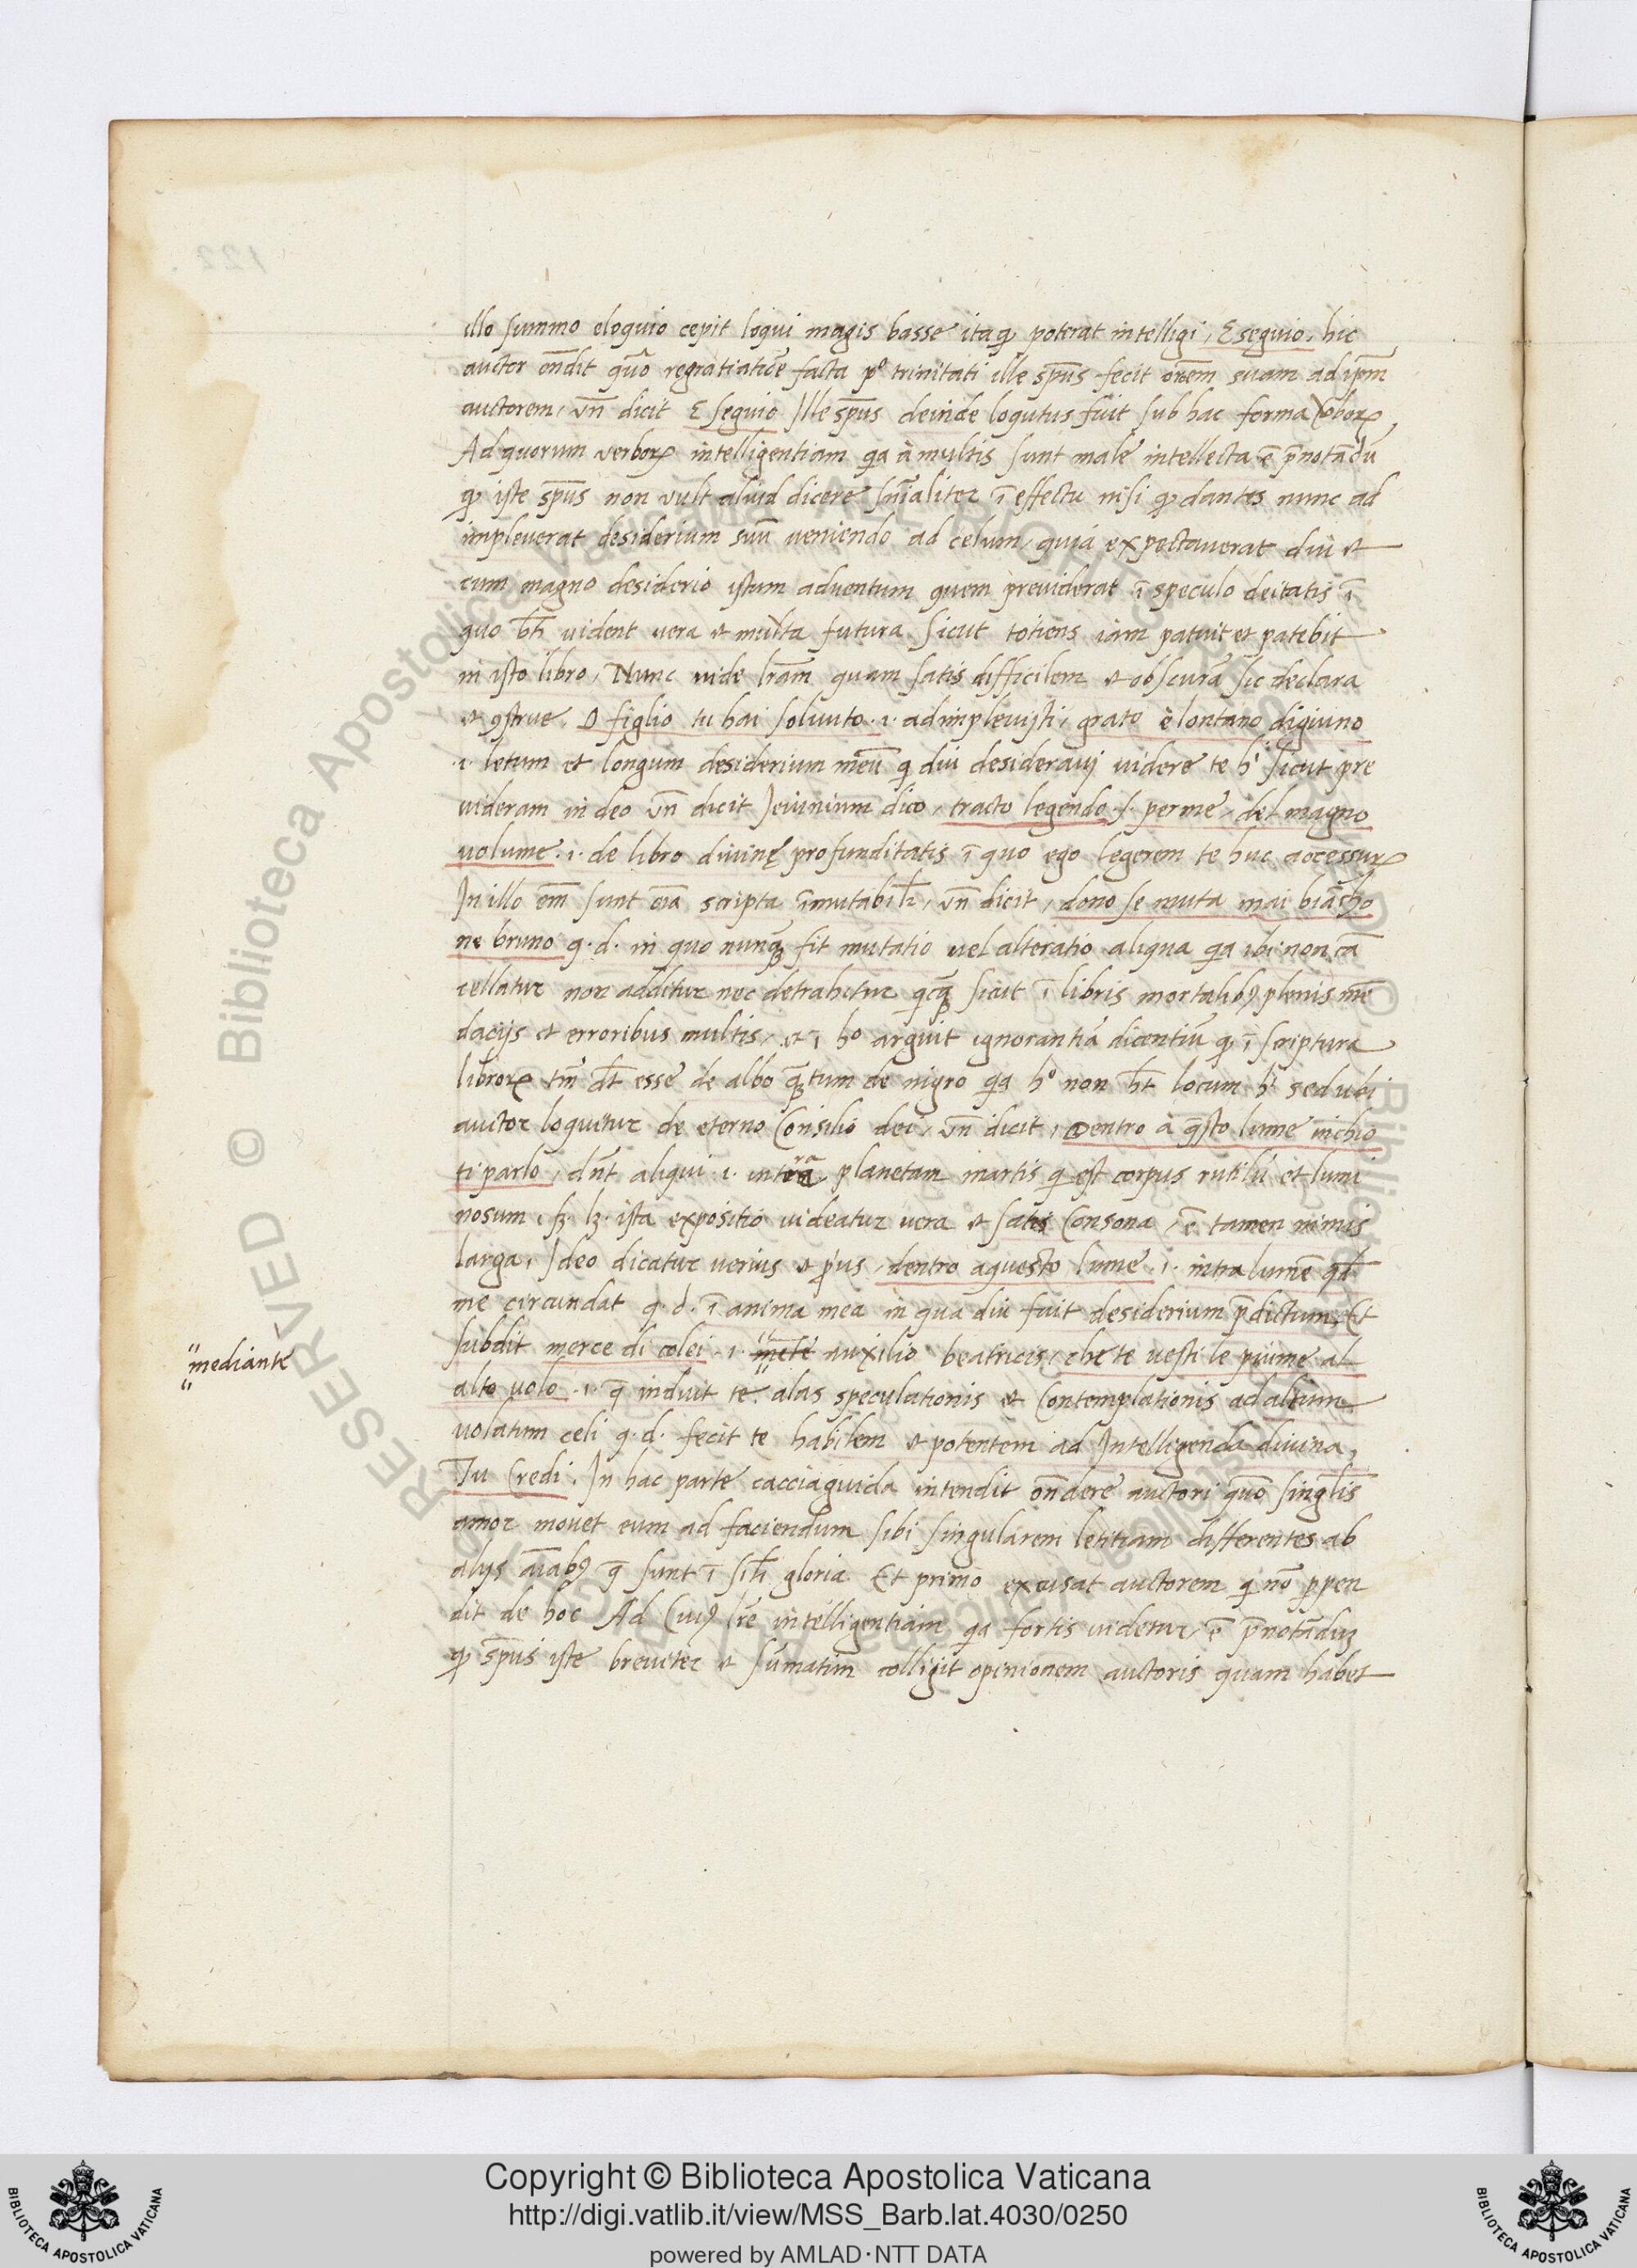 illo summo eloquio cepit loqui magis basse itaq; poterat intelligi, E seguio, hic
auctor on̄dit quō regratiatiōe facta pᵒ trinitati ille spūs fecit orōem suam ad ipm̄
auctorem, vn̄ dicit E seguio Ille spūs deinde loqutus fuit sub hac forma vborꝝ
Ad quorum verborꝝ intelligentiam qa à multis sunt male intellecta ē p̄notādū
ꝙ iste spūs non vult aliud dicere sn̄ialiter ī effectu nisi ꝙ dantes nunc ad
impleverat desiderium suū veniendo ad celum, quia expectaverat diu et
cum magno desiderio istum adventum quem previderat ī speculo deitatis ī
quo bt̄i vident vera et multa futura sicut totiens iam patuit et patebit
in isto libro, Nunc vide lr̄am quam satis difficilem et obscurā sic declara
et ꝯstrue. O figlio tu hai soluuto .i. adimplevisti, grato e lontano digiuno
.i. letum et longum desiderium meū q diu desideravi videre te hⁱ sicut pre
videram in deo vn̄ dicit Ieiunium dico, tracto legendo .s. per me, del magno
volume .i. de libro divinę profunditatis ī quo ego legerem te huc accessurꝝ
In illo em̄ sunt oīa scripta īmutabilr̄, vn̄ dicit, dono se muta mai biācho
ne bruno q.d. in quo nunꝗ fit mutatio vel alteratio aliqua qa ibi non cā
cellatur non additur nec detrahitur qcꝗ sicut ī libris mortalibꝰ plenis mē
daciis et erroribus multis, et ī hᵒ arguit ignorantiā dicentiū ꝙ ī scriptura
librorꝝ tm̄ dt̄ esse de albo ꝗtum de nigro qa hᵒ non ht̄ locum hⁱ sed ubi
auctor loquitur de eterno Consilio dei, vn̄ dicit, Dentro à q̄sto lume inchio
ti parlo, dn̄t aliqui .i. intra planetam martis q est corpus rutilū et lumi
nosum, sꝫ lꝫ ista expositio videatur vera et satis Consona, ē tamen nimis
larga, Ideo dicatur verius et ꝓpius, dentro a questo lume .i. intra lumē qd̄
me circundat q.d. ī anima mea in qua diu fuit desiderium p̄dictum, Et
subdit merce di colei .i. mete auxilio beatricis, che te vesti le piume al
"mediante
alto volo .i. q̄ induit te alas speculationis et Contemplationis ad altum
volatum celi q.d. fecit te habilem et potentem ad Intelligenda divina,
Tu Credi. In hac parte cacciaguida intendit on̄dere auctori quō singlīs
amor movet eum ad faciendum sibi singularem letitiam differentes ab
alijs aīabꝰ q̄ sunt ī sil̄i gloria Et primo excusat auctorem q nō ꝓpen
dit de hoc Ad Cuiꝰ lr̄e intelligentiam qa fortis videtur, ē p̄notādū
ꝙ spūs iste breviter et sūmatim colligit opinionem auctoris quam habet
Copyright © Biblioteca Apostolica Vaticana
http://digi.vatlib.it/view/MSS_Barb.lat.4030/0250
powered by AMLAD·NTT DATA
BIBLIOTECA APOSTOLICA VATICANA
BIBLIOTECA APOSTOLICA VATICANA